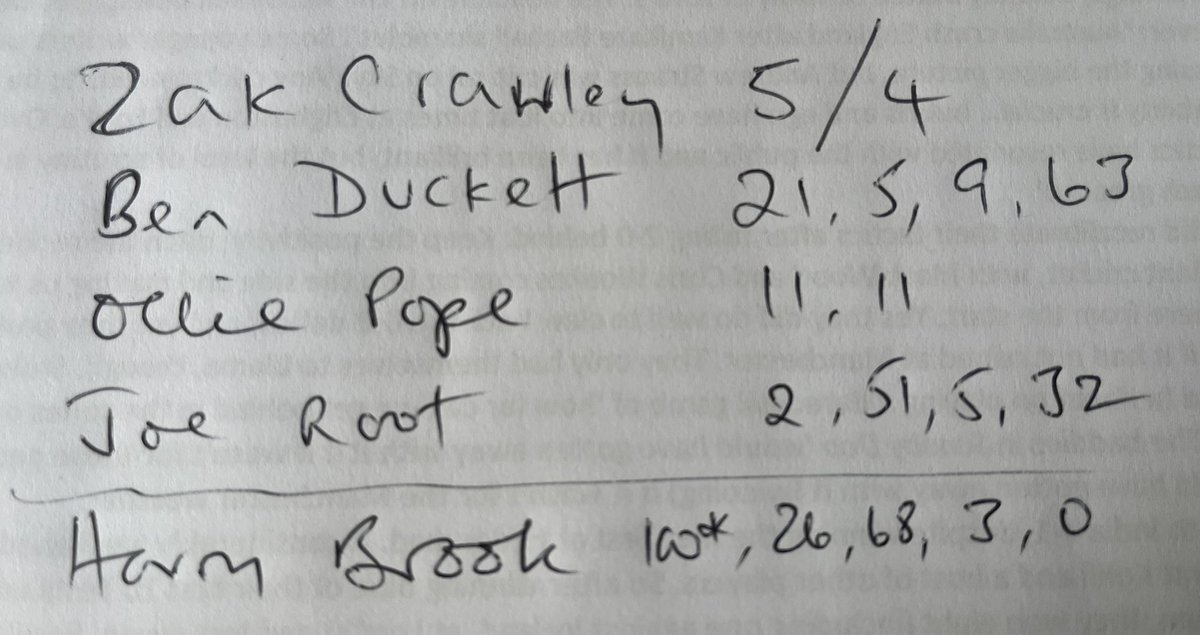 Zak Crawley 5/4
Ben Duckett 21, 5, 9, 63
Ollie Pope 11, 11
Joe Root 2, 51, 5, 32
Harry Brook 100*, 26, 68, 3, 0